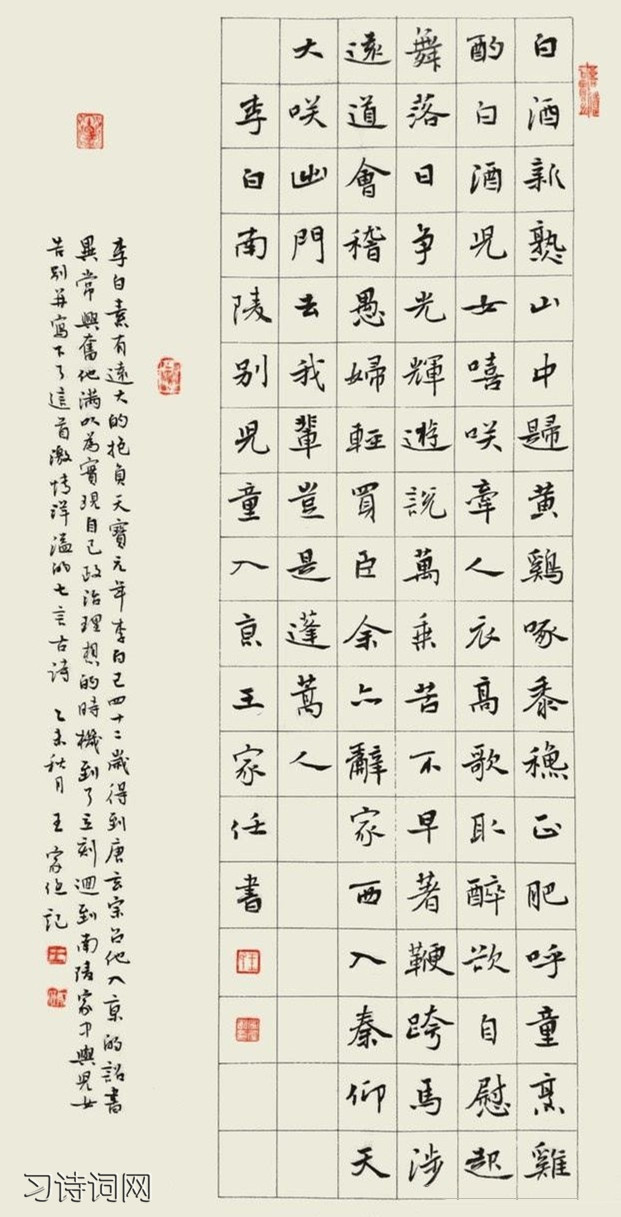 白酒新熟山中歸黃鷄啄黍穐正肥呼童烹雞
酌白酒兒女嘻咲牽人衣高歌取醉欲自慰起
舞落日爭光輝遊說萬乘苦不早著鞭跨馬涉
遠道會稽愚婦輕買臣余亦辭家西入秦仰天
大咲出門去我輩豈是蓬蒿人
李白南陵別兒童入京王家任書
李白素有遠大的抱負天寶元年李白已四十二歲得到唐玄宗召他入京的詔書
異常興奮他滿以為實現自己政治理想的時機到了立刻迴到南陵家中與兒女
告別并寫下了這首激情洋溢的七言古詩 乙未秋月 王家任記
习诗词网